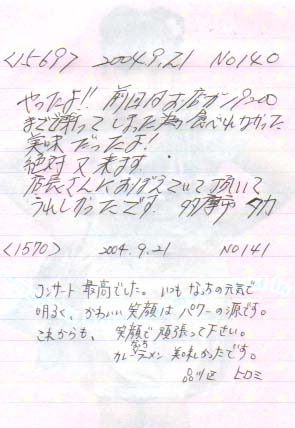 <1569> 2004.9.21 No140
やったよ!! 前回はお店が19:00
まで待ってしまった為食べれなかった
美味だったよ!
絶対又来ます。
店長さんにおぼえていて頂いて
うれしかったです。
<1570> 2004.9.21 No141
コンサート最高でした。いつもなっちの元気で
明るく、かわいい笑顔はパワーの源です。
これからも、笑顔で頑張って下さい。
なっち
カレーラーメン美味しかったです。
品川区 ヒロミ